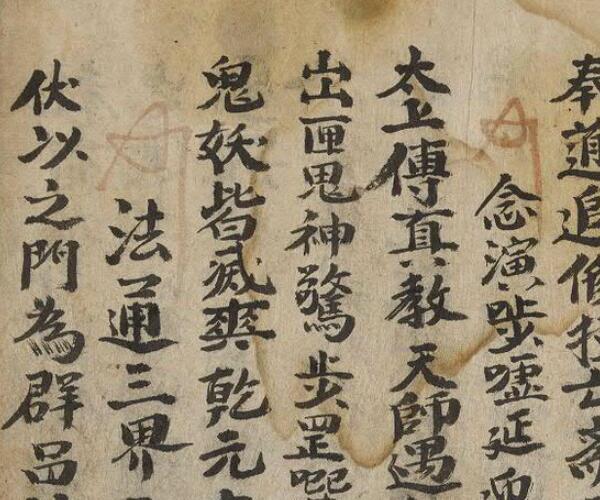 奉道追修扶亡斋
念演步噓延
太上傳真教天師遇
出匣鬼神驚步罡
鬼妖皆滅爽乾元
法通三界
伏以之門為群品